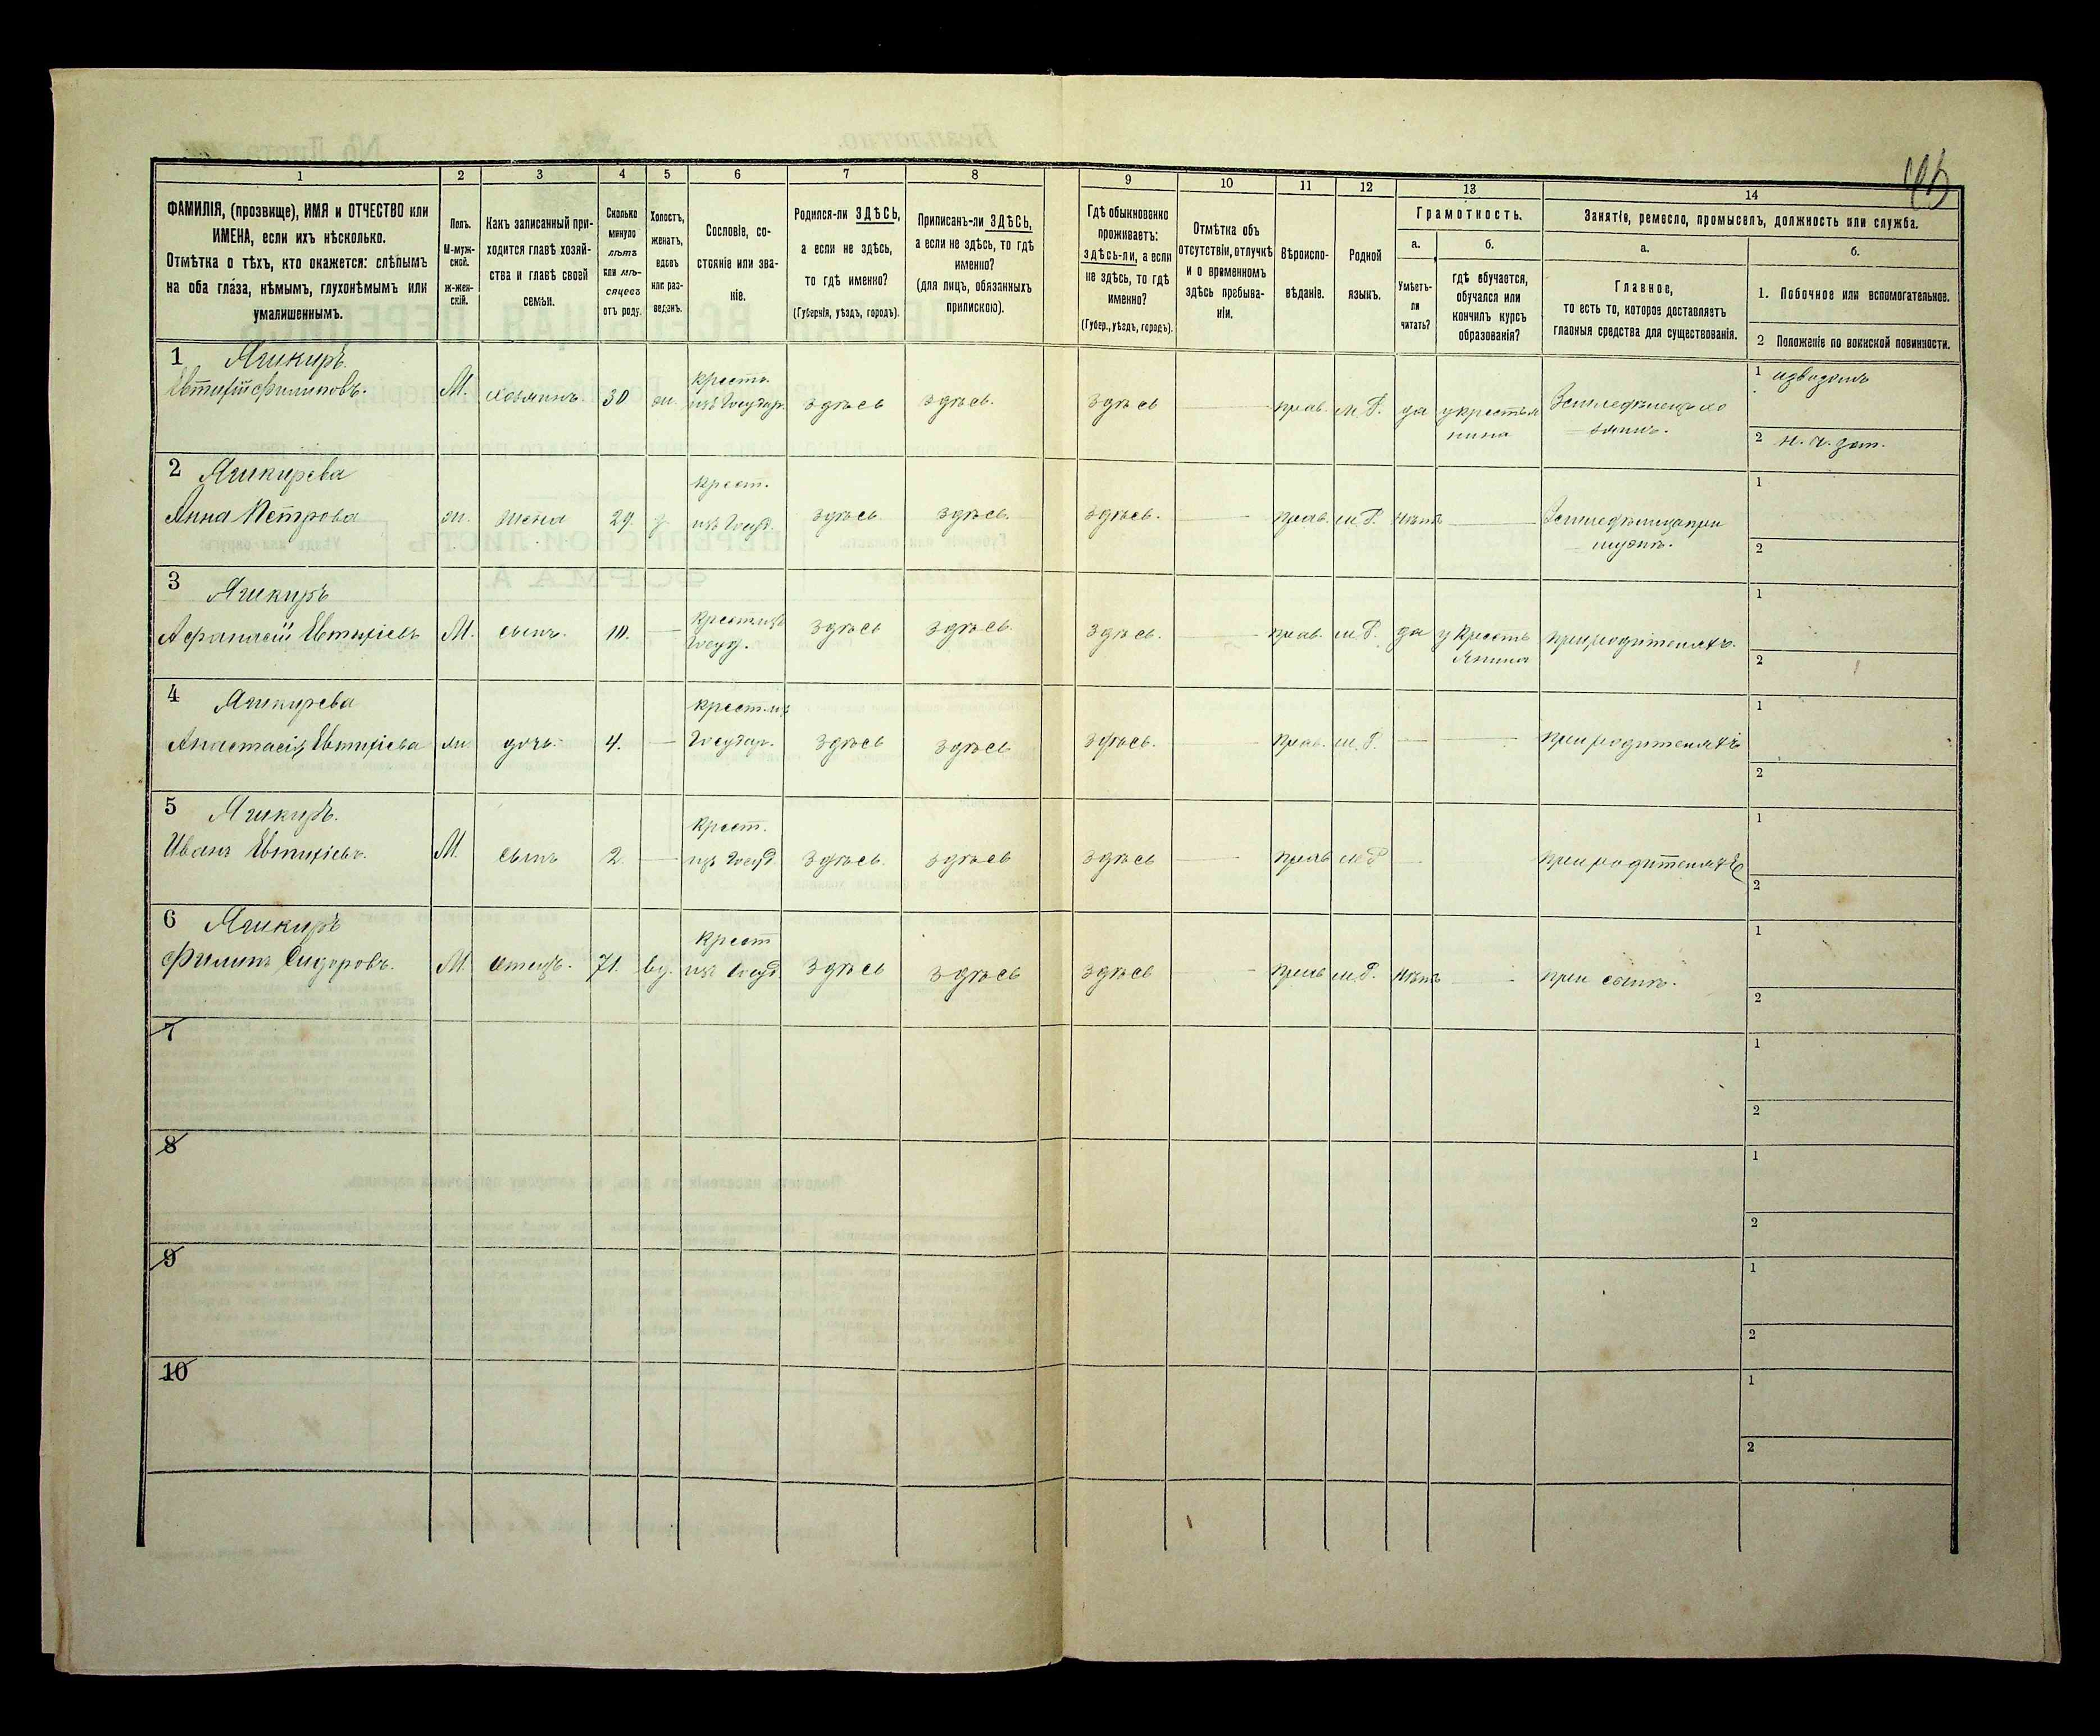 1 2 3 4 5 6 7 8 9 10 11 12 13 14
ФАМИЛІЯ, (прозвище), ИМЯ и ОТЧЕСТВО или
ИМЕНА, если ихъ нѣсколько.
Отмѣтка о тѣхъ, кто окажется: слѣпымъ
на оба глаза, нѣмымъ, глухонѣмымъ или
умалишеннымъ.
Полъ.
М-муж-
ской.
Ж-жен-
скій.
Какъ записанный при-
ходится главѣ хозяй-
ства и главѣ своей
семьи.
Сколько
минуло
лѣтъ
или мѣ-
сяцевъ
отъ роду.
Холостъ,
женатъ,
вдовъ
или раз-
веденъ.
Сословіе, со-
стояніе или зва-
ніе.
Родился-ли ЗДѢСЬ,
а если не здѣсь,
то гдѣ именно?
(Губернія, уѣздъ, городъ).
Приписанъ-ли ЗДѢСЬ,
а если не здѣсь, то гдѣ
именно?
(для лицъ, обязанныхъ
припискою).
Гдѣ обыкновенно
проживаетъ:
здѣсь-ли, а если
не здѣсь, то гдѣ
именно?
(Губер., уѣздъ, городъ).
Отмѣтка объ
отсутствіи, отлучкѣ
и о временномъ
здѣсь пребыва-
ніи.
Вѣроиспо-
вѣданіе.
Родной
языкъ.
Грамотность.
а.
Умѣетъ-
ли
читать?
б.
гдѣ обучается,
обучался или
кончилъ курсъ
образованія?
Занятіе, ремесло, промыселъ, должность или служба.
а.
Главное,
то есть то, которое доставляетъ
главныя средства для существованія.
б.
1. Побочное или вспомогательное.
2 Положеніе по воинской повинности.
1 Ячикиръ.
Евтихій Филиповъ. М. хозяинъ 30 ж. крестъ. изъ Государ. здѣсь здѣсь. здѣсь прав. м.Р. да у крестья
нина
Земледѣлецъ хо
зяинъ.
1 извозомъ
2 н. ч. зап.
2 Ячикирева
Анна Петрова ж. жена 29. крест. изъ Госуд. здѣсь здѣсь. здѣсь. прав. м.Р. нѣтъ
Земледѣлица при
мужѣ.
1
2
3 Ячикиръ
Афанасій Евтихіевъ М. сынъ. 10. Крест. изъ Госуд. здѣсь здѣсь. здѣсь. прав. м.Р. да у Кресть
янина
при родителяхъ.
1
2
4 Ячикирева
Анастасія Евтихіева ж. дочь 4. крест. из Государ. здѣсь здѣсь здѣсь. прав. м.Р. при родителяхъ
1
2
5 Ячикиръ.
Иванъ Евтихіевъ. М. сынъ 2 Крест. из Госуд. здѣсь. здѣсь здѣсь прав м Р при родителяхъ
1
2
6 Ячикиръ
Филипъ Сидоровъ. М. отецъ. 71. вд. Крест изъ Госуд здѣсь здѣсь здѣсь прав м.Р. нѣтъ при сынѣ.
1
2
7
1
2
8
1
2
9
1
2
10
1
2